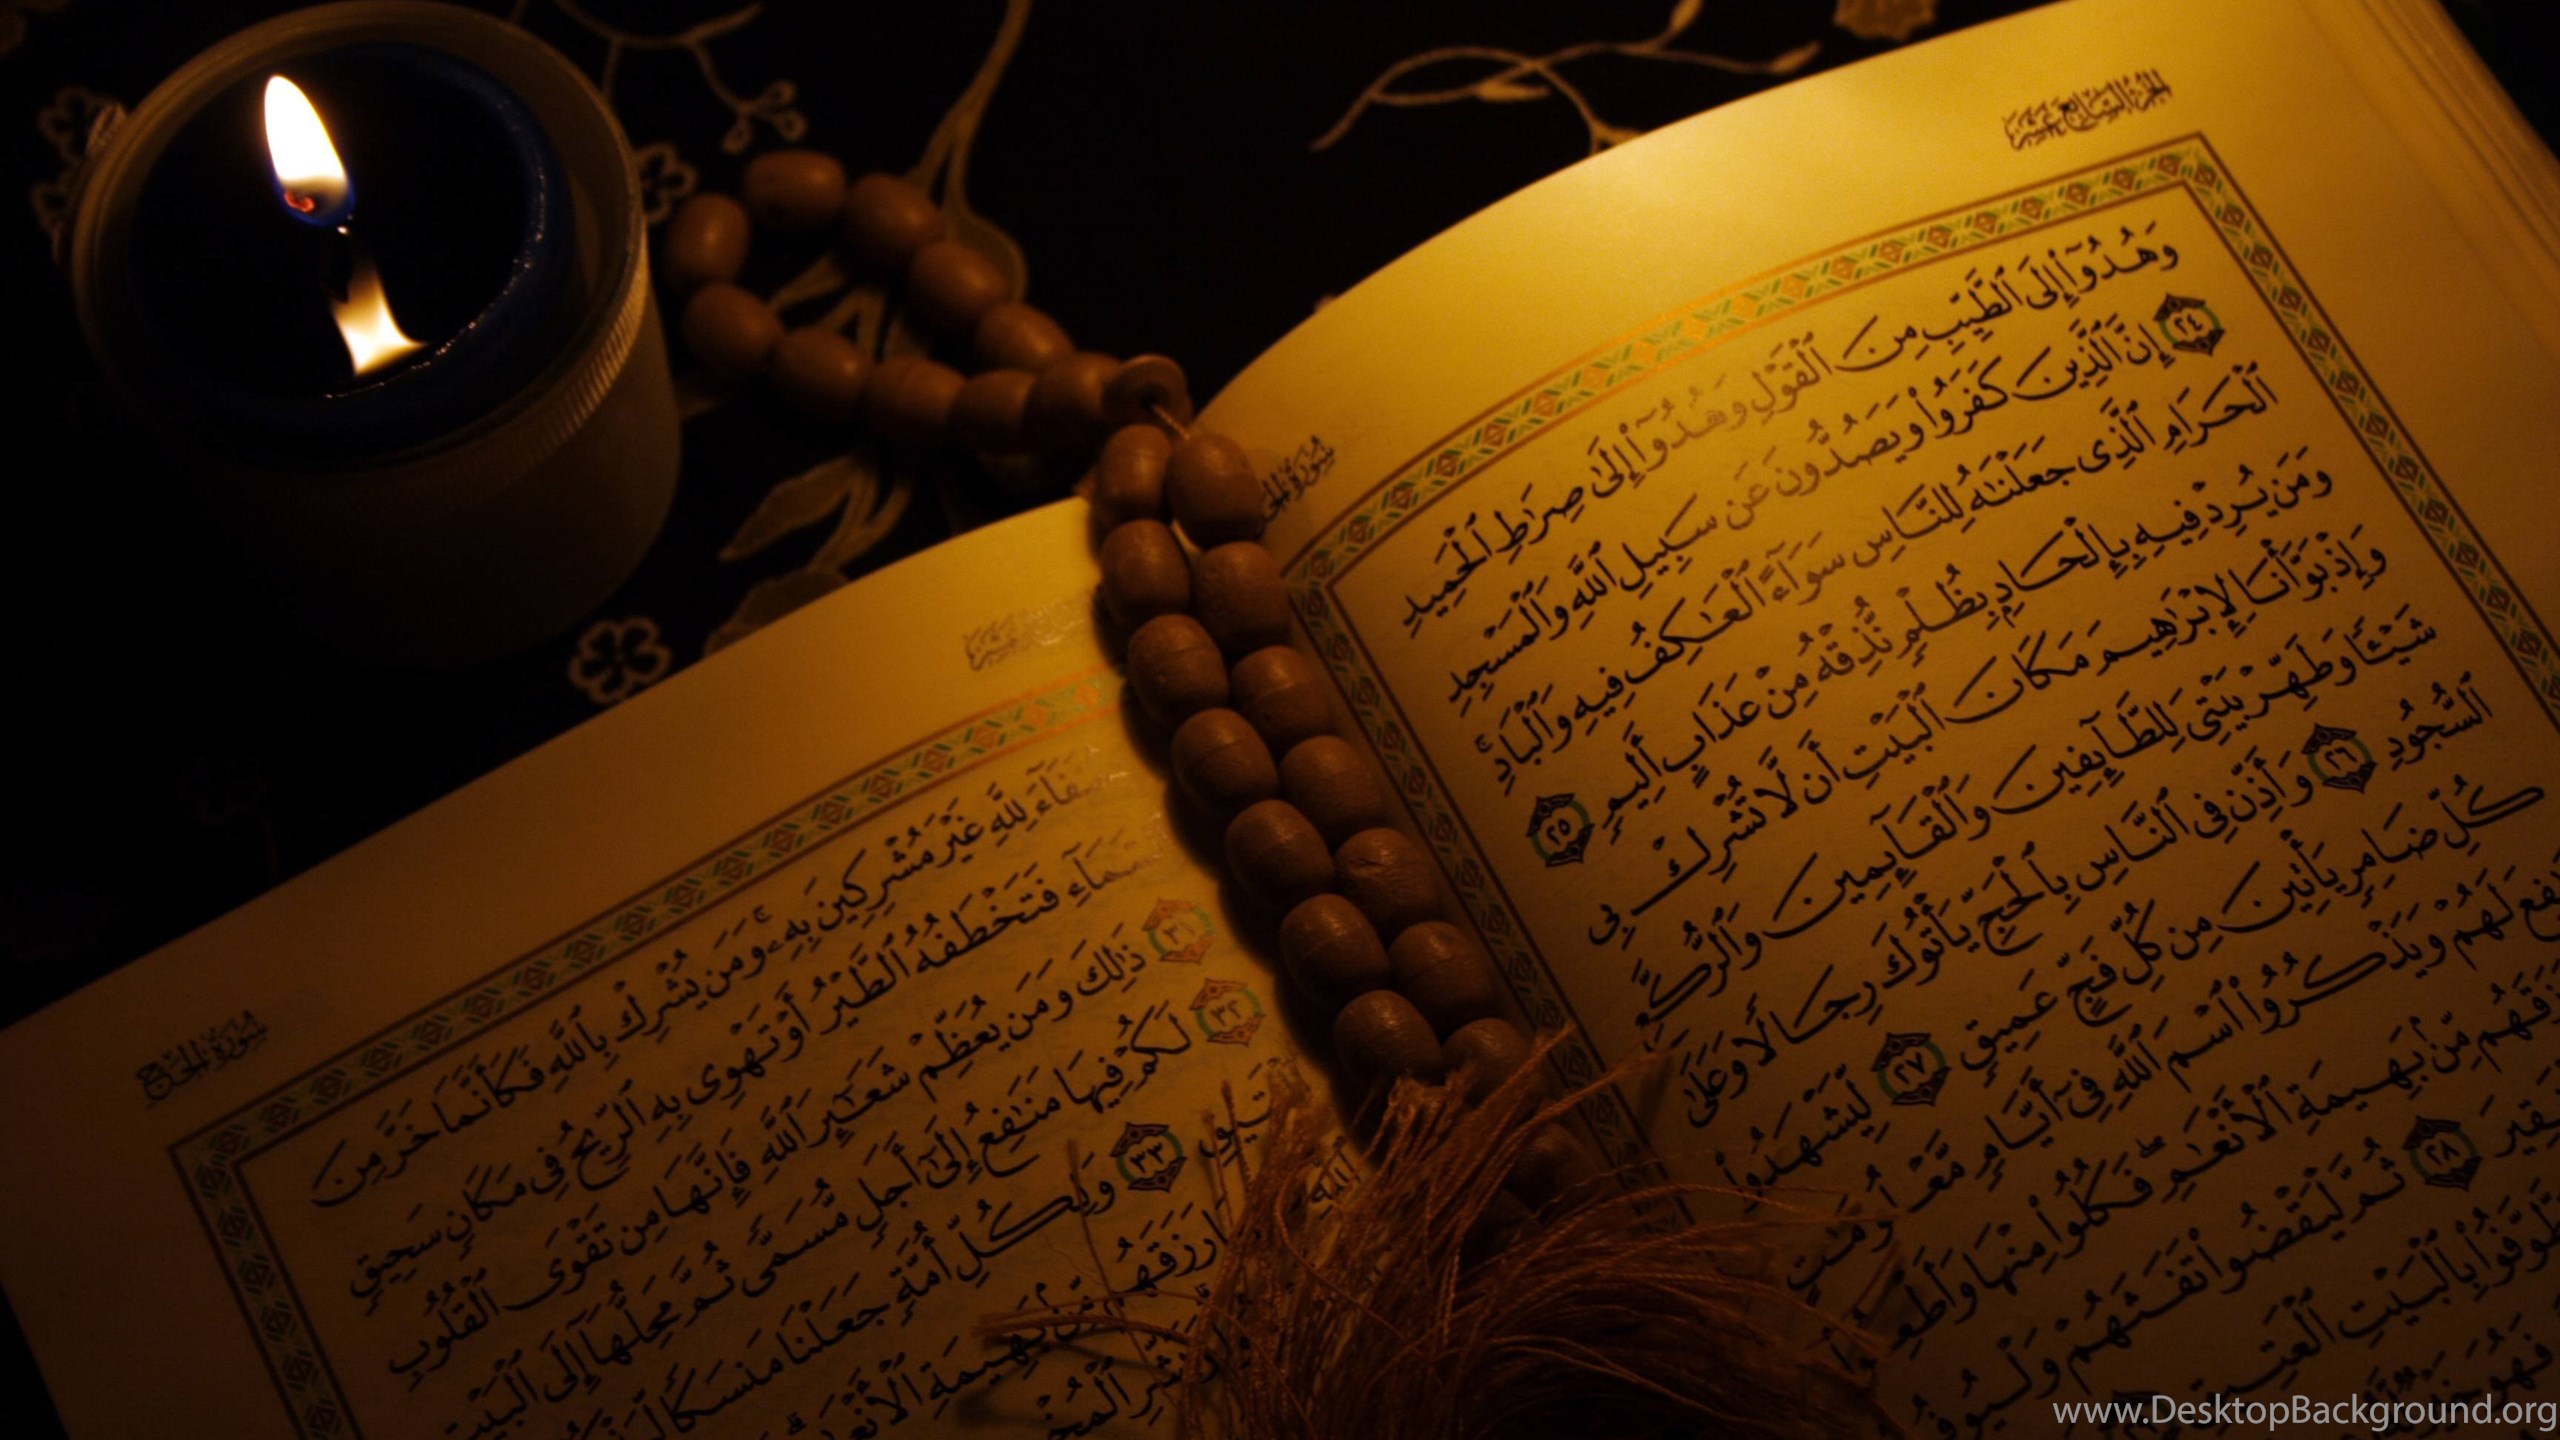 الجزء السابع عشر
سورة
وَهُدُوٓا۟ إِلَى ٱلطَّيِّبِ مِنَ ٱلْقَوْلِ وَهُدُوٓا۟ إِلَىٰ صِرَٰطِ ٱلْحَمِيدِ
٢٤ إِنَّ ٱلَّذِينَ كَفَرُوا۟ وَيَصُدُّونَ عَن سَبِيلِ ٱللَّهِ وَٱلْمَسْجِدِ
ٱلْحَرَامِ ٱلَّذِى جَعَلْنَٰهُ لِلنَّاسِ سَوَآءً ٱلْعَٰكِفُ فِيهِ وَٱلْبَادِ ۚ
وَمَن يُرِدْ فِيهِ بِإِلْحَادٍۭ بِظُلْمٍ نُّذِقْهُ مِنْ عَذَابٍ أَلِيمٍ ٢٥
وَإِذْ بَوَّأْنَا لِإِبْرَٰهِيمَ مَكَانَ ٱلْبَيْتِ أَن لَّا تُشْرِكْ بِى
شَيْـًٔا وَطَهِّرْ بَيْتِىَ لِلطَّآئِفِينَ وَٱلْقَآئِمِينَ وَٱلرُّكَّعِ
ٱلسُّجُودِ ٢٦ وَأَذِّن فِى ٱلنَّاسِ بِٱلْحَجِّ يَأْتُوكَ رِجَالًا وَعَلَىٰ
كُلِّ ضَامِرٍ يَأْتِينَ مِن كُلِّ فَجٍّ عَمِيقٍ ٢٧ لِّيَشْهَدُوا۟
لَهُمْ وَيَذْكُرُوا۟ ٱسْمَ ٱللَّهِ فِىٓ أَيَّامٍ مَّعْلُومَٰتٍ
مِّنۢ بَهِيمَةِ ٱلْأَنْعَٰمِ ۖ فَكُلُوا۟ مِنْهَا وَأَطْعِمُوا۟
٢٨ ثُمَّ لْيَقْضُوا۟ تَفَثَهُمْ وَلْيُوفُوا۟
بِٱلْبَيْتِ ٱلْعَتِيقِ
سورة الحج
غَيْرَ مُشْرِكِينَ بِهِۦ ۚ وَمَن يُشْرِكْ بِٱللَّهِ فَكَأَنَّمَا خَرَّ مِنَ
فَتَخْطَفُهُ ٱلطَّيْرُ أَوْ تَهْوِى بِهِ ٱلرِّيحُ فِى مَكَانٍ سَحِيقٍ
٣١ ذَٰلِكَ وَمَن يُعَظِّمْ شَعَٰٓئِرَ ٱللَّهِ فَإِنَّهَا مِن تَقْوَى ٱلْقُلُوبِ
٣٢ لَكُمْ فِيهَا مَنَٰفِعُ إِلَىٰٓ أَجَلٍ مُّسَمًّى ثُمَّ مَحِلُّهَآ إِلَى ٱلْبَيْتِ
٣٣ وَلِكُلِّ أُمَّةٍ جَعَلْنَا مَنسَكًا
رَزَقَهُم مِّنۢ بَهِيمَةِ ٱلْأَنْعَٰمِ
www.DesktopBackground.org